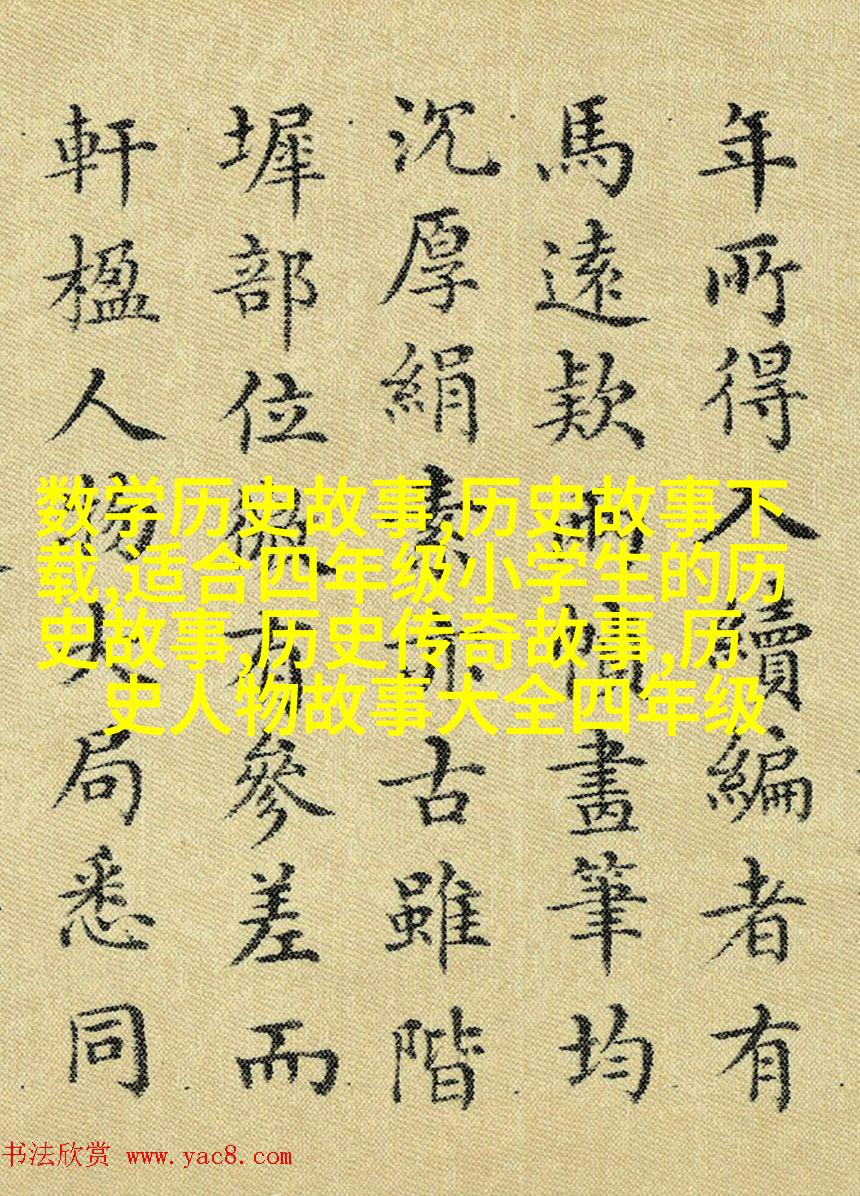 年所得入續編者有
馬遠款畫筆均
沉厚絹素亦古雖階
墀部位微有參差而
軒楹人物大局悉同
数学历史故事,历史故事下
载,适合四年级小学生的历
史故事,历史传奇故事,历
史人物故事大全四年级
书法欣赏 www.yac8.com